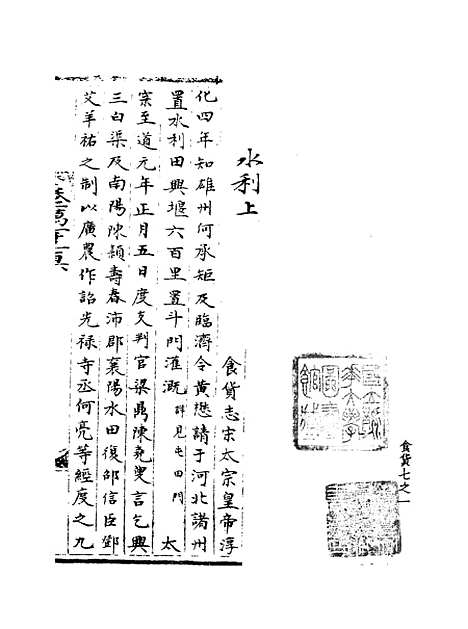 水利上
食貨志宋太宗皇帝淳
化四年知雄州何承矩及臨濟令黃懋請于河北諸州
置水利田興堰六百里置斗門灌溉詳見屯田門 太
宗至道元年正月五日度支判官梁鼎陳堯叟言乞興
三白渠及南陽陳潁壽春沛郡襄陽水田復邵信臣鄧
艾羊祜之制以廣農作詔光祿寺丞何亮等經度之九
食貨七之一